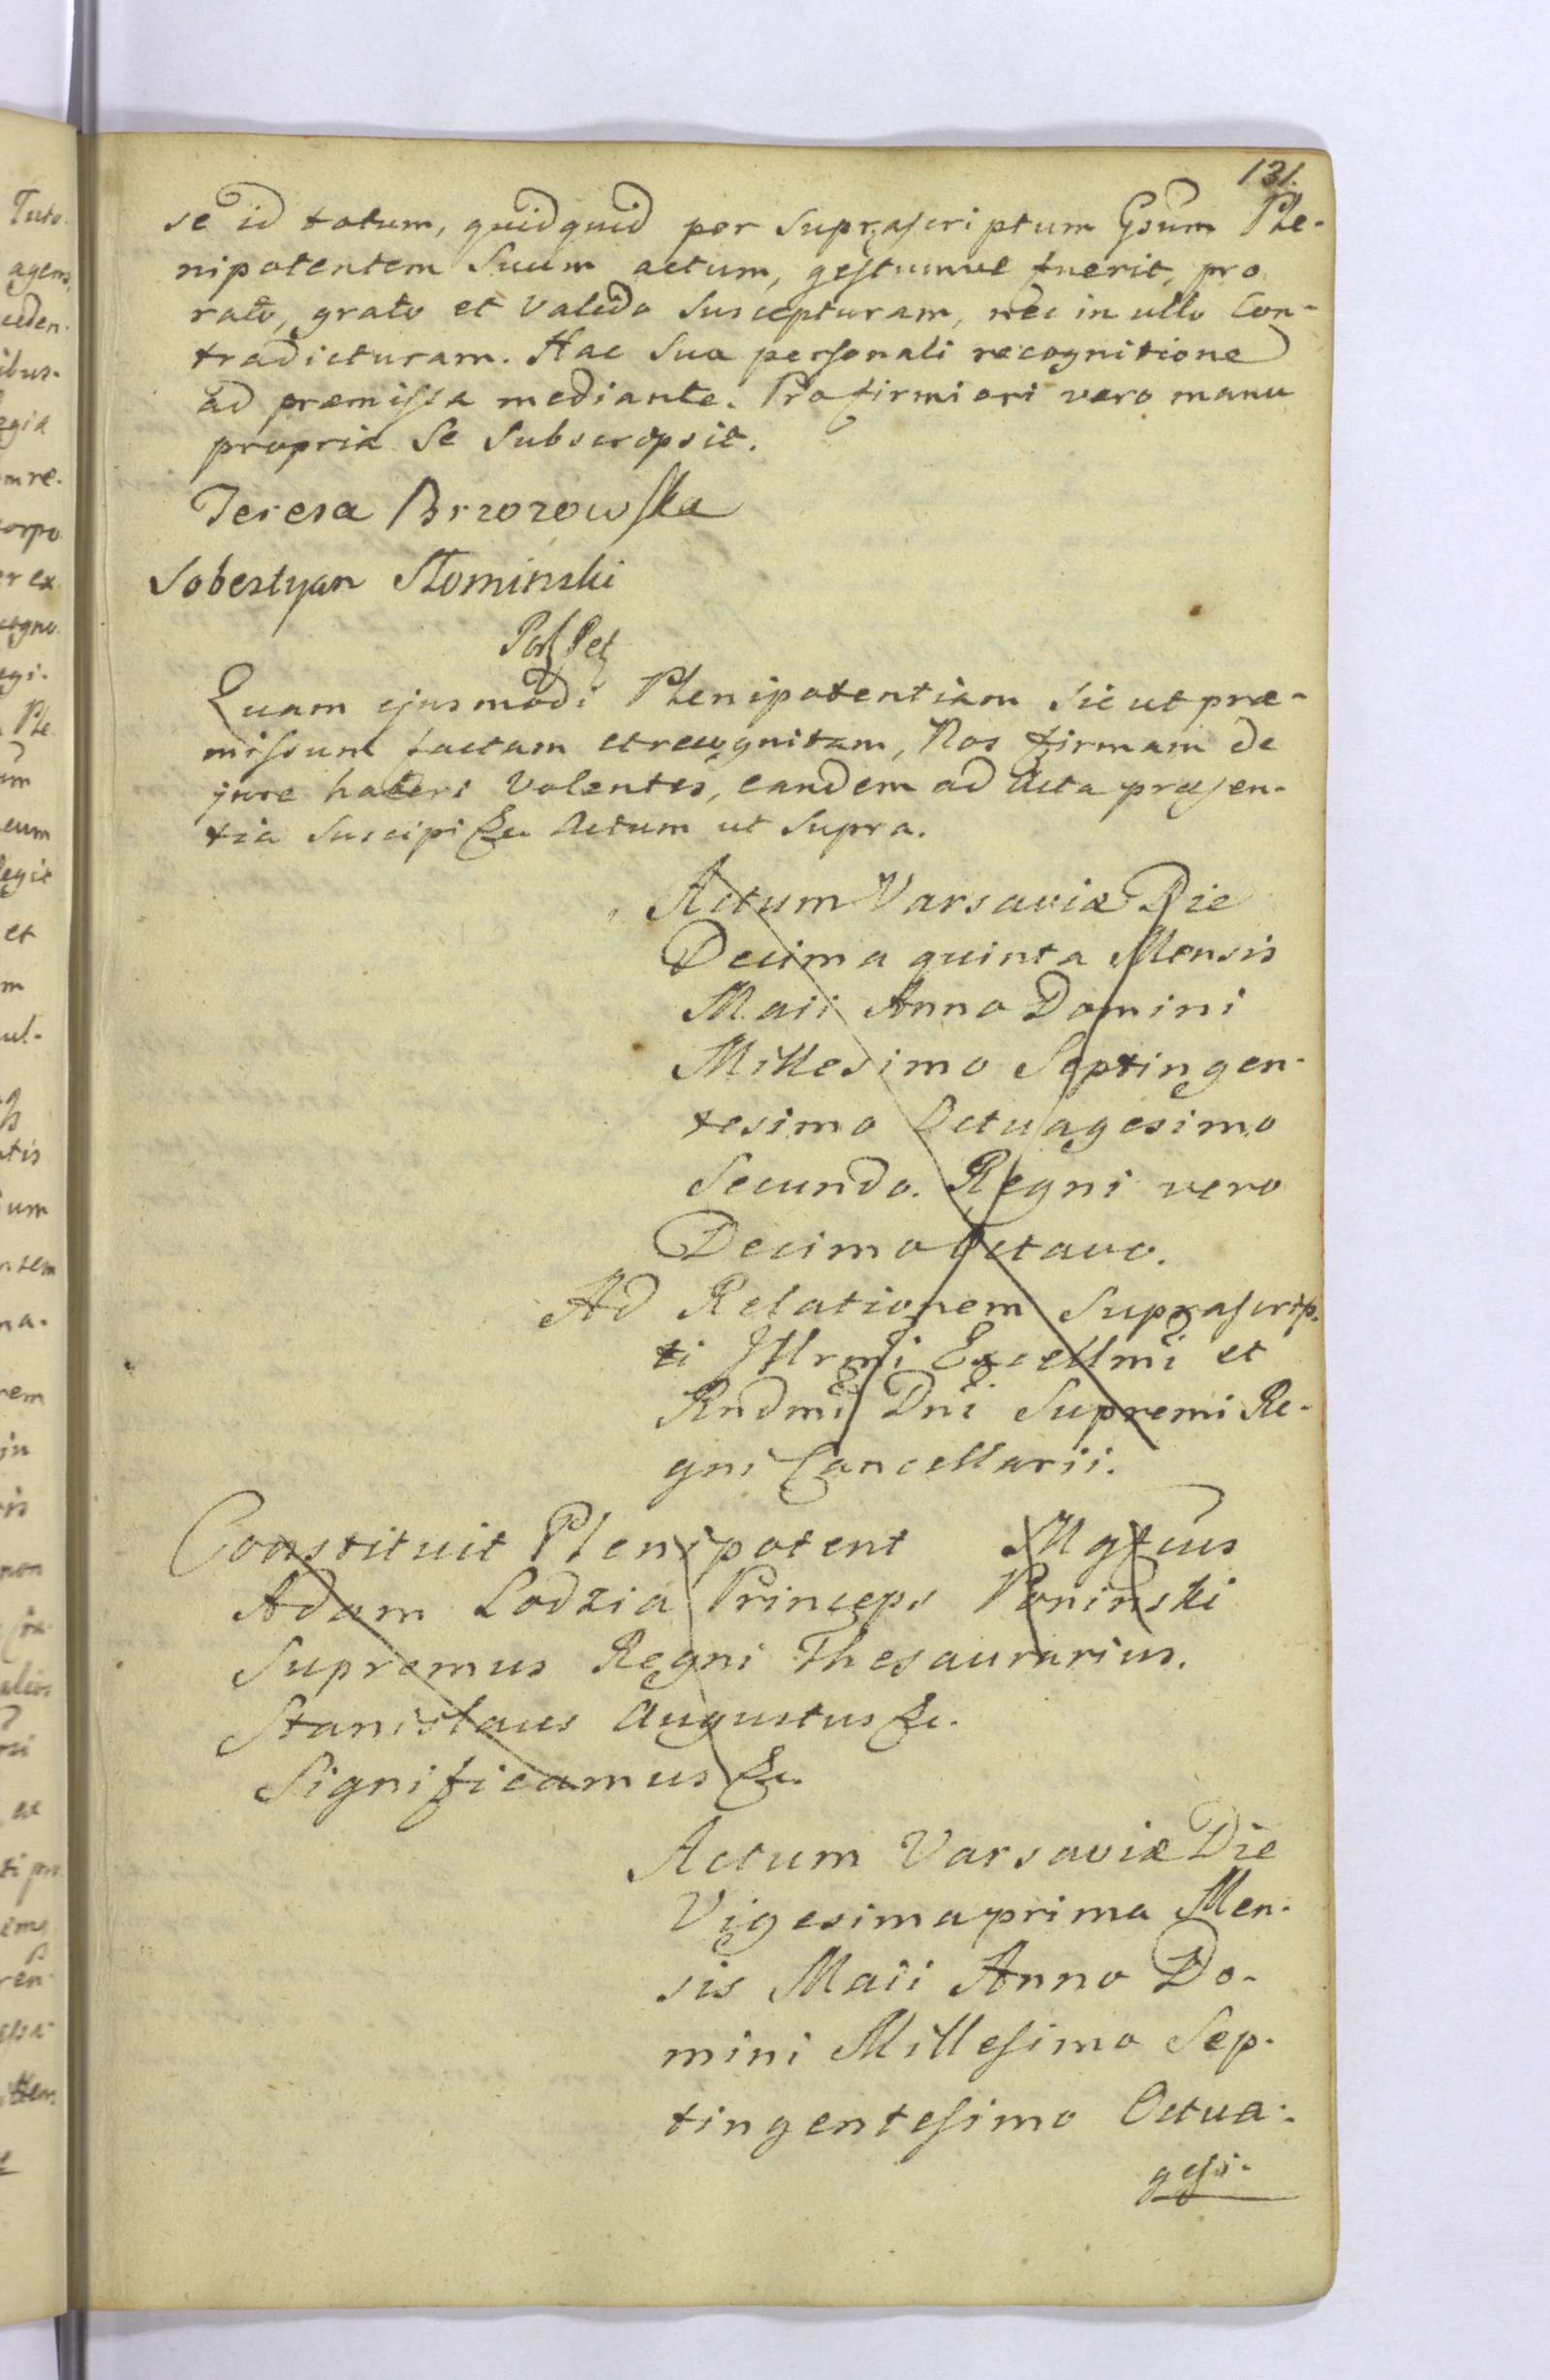 131.
se id totum, quidquid per Suprascriptum Gsum Ple-
nipotentem Suum actum, gestumve fuerit, pro
rato, grato et Valido Suscepturam, nec in ullo Con-
tradicturam. Hac Sua personali recognitione
ad præmissa mediante. Pro firmiori vero manu
propria Se Subscripsit.
Teresa Brzozowska
Sobestyan Słominski
Quam ejusmodi Plenipotentiam Sic ut præ-
missum factam et recognitam, Nos firmam de
jure haberi Volentes, eandem ad Acta præsen-
tia Suscipi &c. Actum ut Supra.
Actum Varsaviæ Die
Decima quinta Mensis
Maii Anno Domini
Millesimo Septingen-
tesimo Octuagesimo
Secundo. Regni vero
Decimo Octavo.
Ad Relationem Suprascrip-
ti Jllrmi Excellmi et
Rndmi Dni Supremi Re-
gni Cancellarii.
Constituit Plenipotent Mgfcus
Adam Lodzia Princeps Poninski
Supremus Regni Thesaurarius.
Stanislaus Augustus &c.
Significamus &c.
Actum Varsaviæ Die
Vigesima prima Men-
sis Maii Anno Do-
mini Millesimo Sep-
tingentesimo Octua-
gesi-